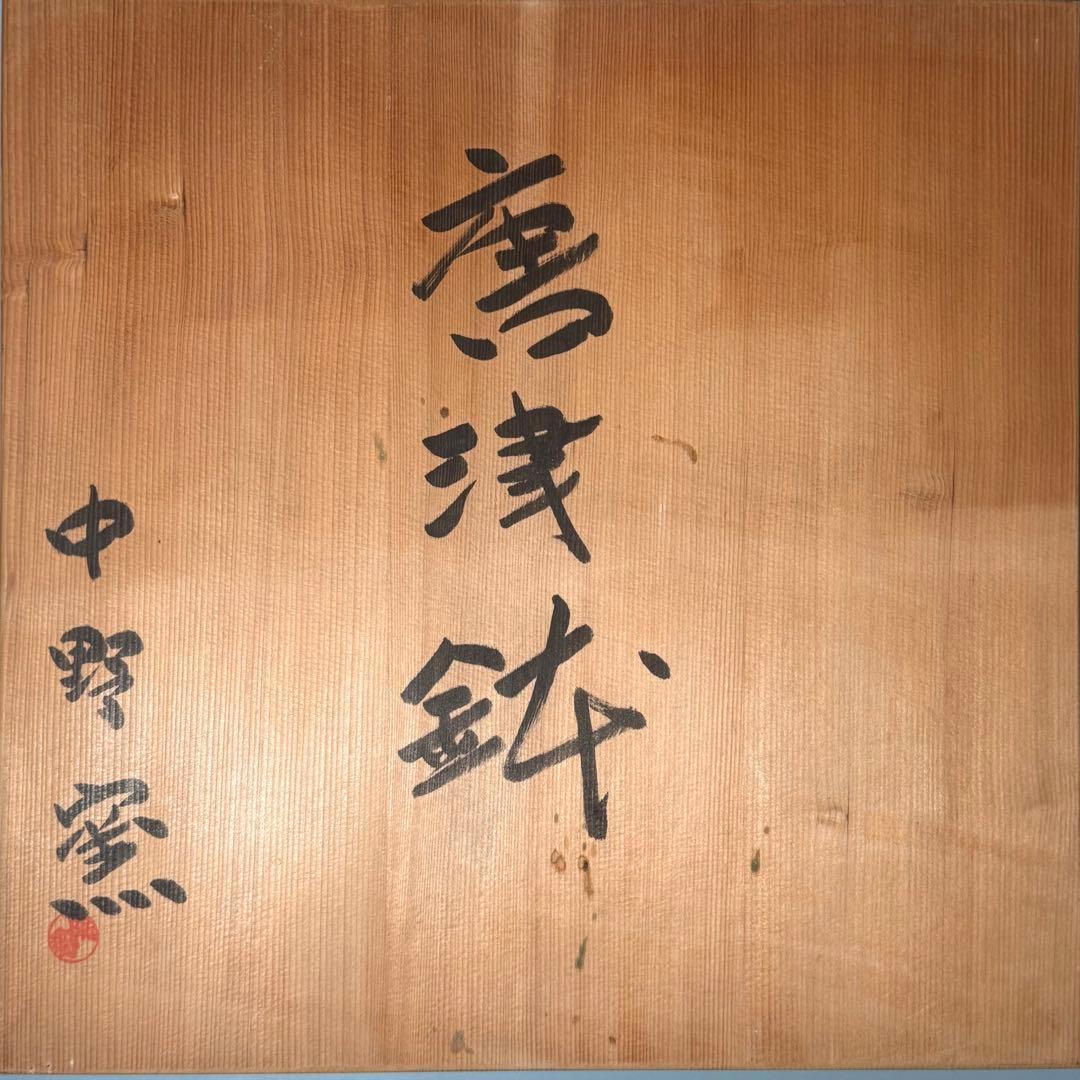 唐津鉢
中野窯